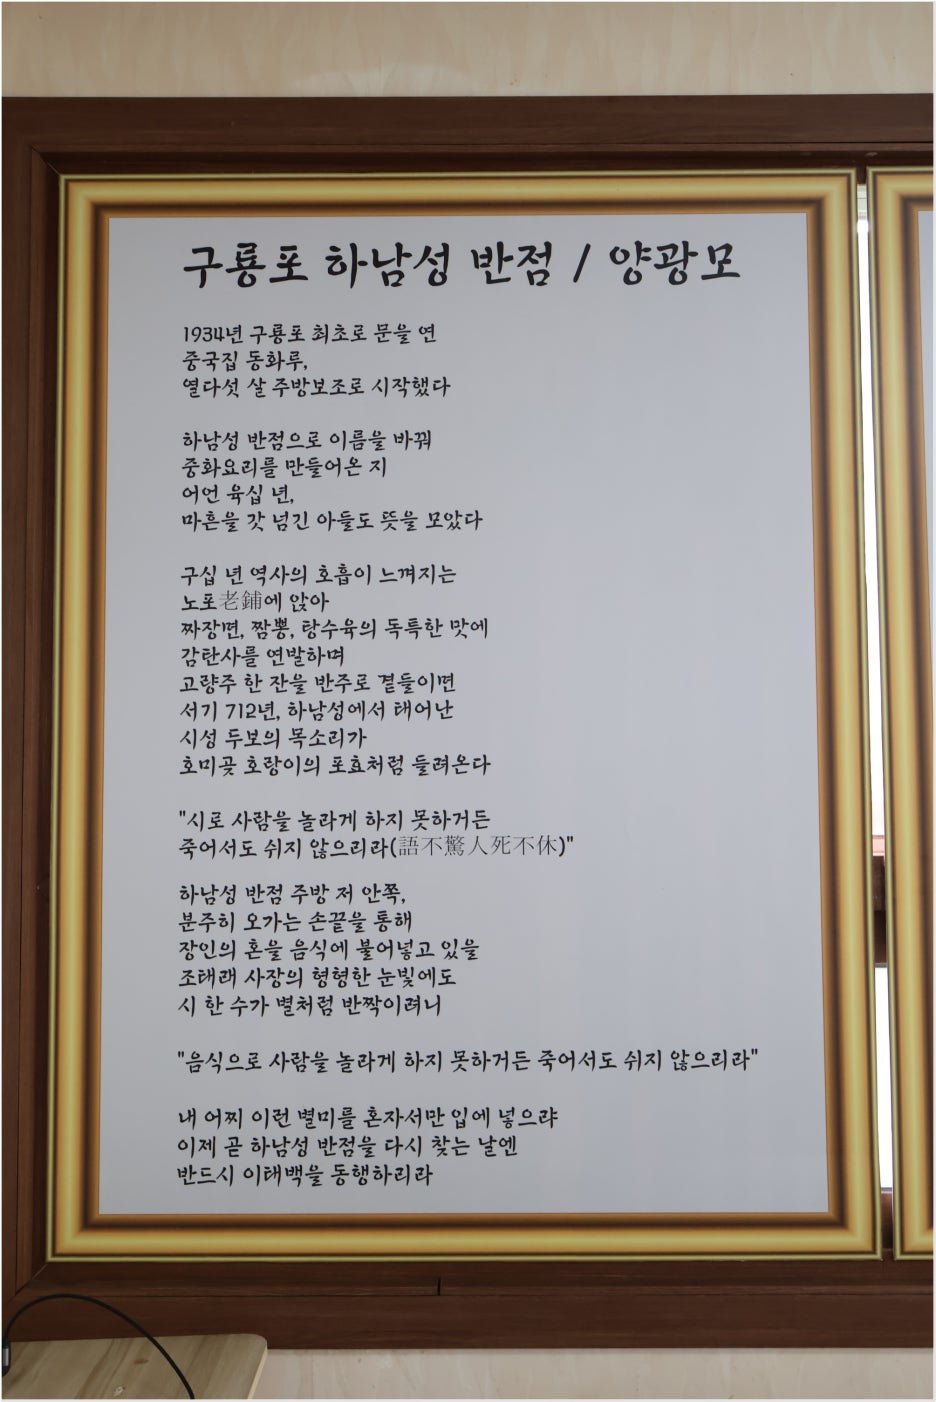 구룡포 하남성 반점 / 양광모
1934년 구룡포 최초로 문을 연
중국집 동화루,
열다섯 살 주방보조로 시작했다
하남성 반점으로 이름을 바꿔
중화요리를 만들어온 지
어언 육십 년,
마흔을 갓 넘긴 아들도 뜻을 모았다
구십 년 역사의 호흡이 느껴지는
노포老鋪에 앉아
짜장면, 짬뽕, 탕수육의 독특한 맛에
감탄사를 연발하며
고량주 한 잔을 반주로 곁들이면
서기 712년, 하남성에서 태어난
시성 두보의 목소리가
호미곶 호랑이의 포효처럼 들려온다
"시로 사람을 놀라게 하지 못하거든
죽어서도 쉬지 않으리라(語不驚人死不休)"
하남성 반점 주방 저 안쪽,
분주히 오가는 손끝을 통해
장인의 혼을 음식에 불어넣고 있을
조태래 사장의 형형한 눈빛에도
시 한 수가 별처럼 반짝이려니
"음식으로 사람을 놀라게 하지 못하거든 죽어서도 쉬지 않으리라"
내 어찌 이런 별미를 혼자서만 입에 넣으랴
이제 곧 하남성 반점을 다시 찾는 날엔
반드시 이태백을 동행하리라